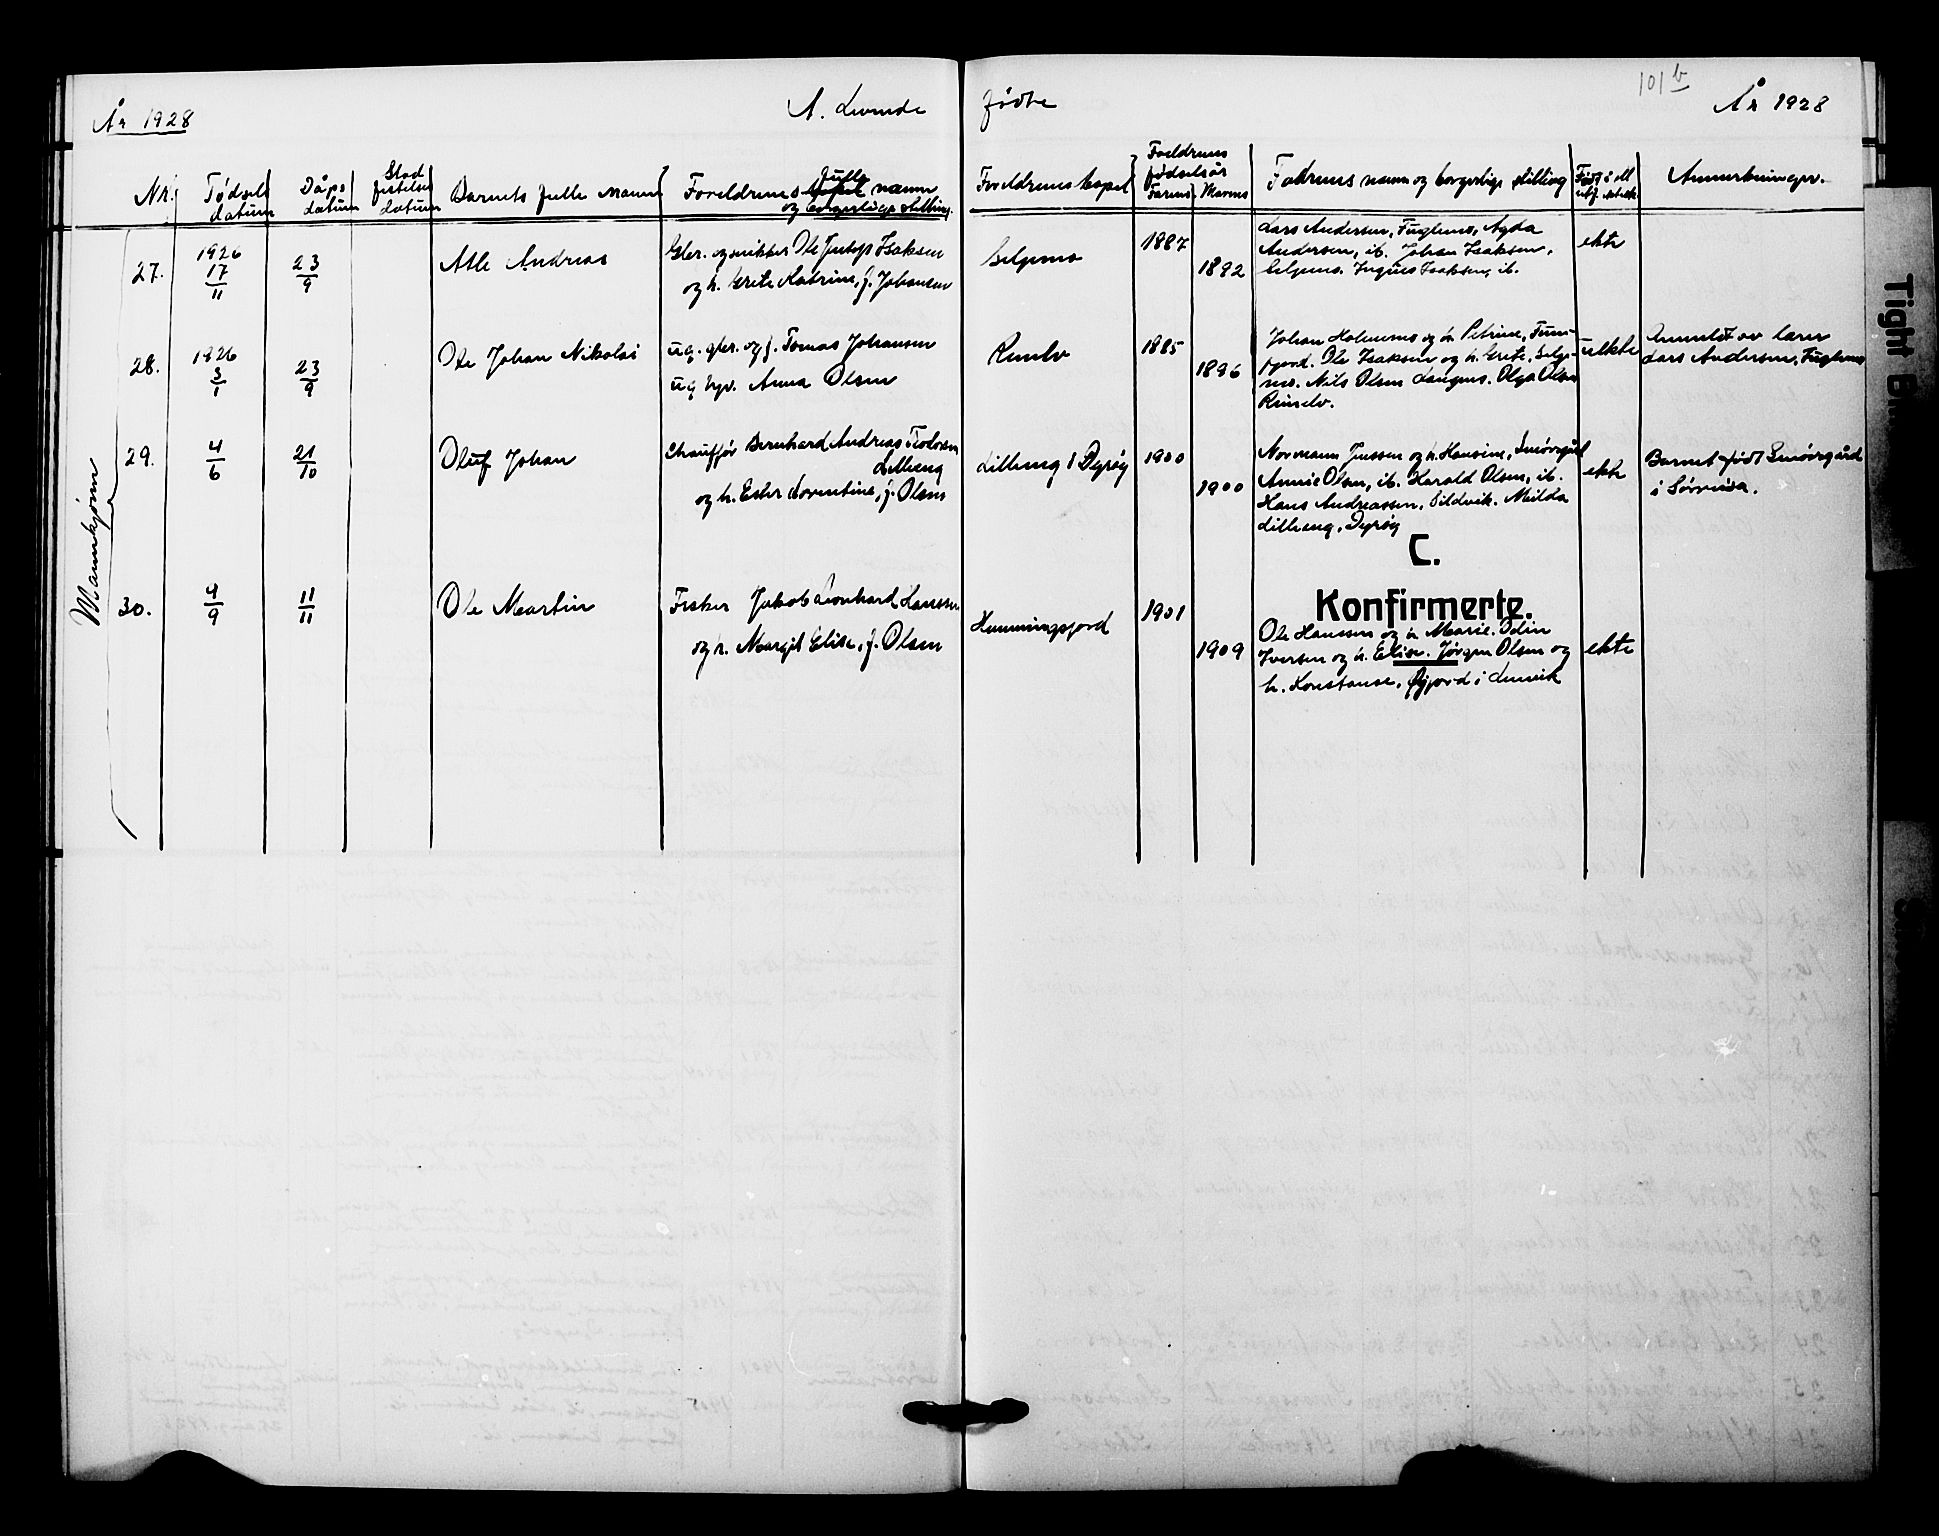 101 b
År 1928
A. Levende
fødte
År 1928
Nr.
Fødsels
datum
Dåps
datum
Stad
festelses
datum
Barnets fulle navn
Foreldrenes fulle navn
og borgerlige stilling.
Foreldrenes bopel
Foreldrenes
fødselsår
Farens
Morens
Fadrenes navn og borgerlige stilling
Anmerkninger.
Mannkjønn
27.
1926
17/11
23/9
Atle Andreas
Gbr. og snikker Ole Justep Isaksen
og h. Grete Katrine, f. Johansen
Selgenes
1887
1892
Lars Andersen, Fuglenes, Agda
Andersen, ib. Johan Isaksen,
Selgenes. Isaksen, ib.
ekte
28.
1926
3/1
23/9
Ole Johan Nikolai
ug. gbr. og f. Tomas Johansen
ug. hpr. Anna Olsen
Rinelv
1885
1896
Johan Holmenes og h. Petrine, Finn-
fjord. Ole Isaksen og h. Grete, Selge-
nes. Nils Olsen Langnes. Olga Olsen
Rinelv.
uekte
Anmeldt av lærer
Lars Andersen, Fuglenes
29.
4/6
21/10
Oluf Johan
Chauffør Bernhard Andreas Teodorsen
Lilleeng
og h. Ester Lorentine, f. Olsen
Lilleeng i Dyrøy
1900
1900
Normann Jenssen og h. Hansine, Smørsgård
Annie Olsen, ib. Harald Olsen, ib.
Hans Andreassen, Sildvik. Milda
Lilleeng, Dyrøy
ekte
Barnet født Smørsgård
i Sørreisa.
C.
Konfirmerte.
30.
4/9
11/11
Ole Martin
Fisker Jakob Leonhard Hanssen
og h. Margit Elise, f. Olsen
Hemmingsfjord
1901
1909
Ole Hanssen og h. Marie. Odin
Iversen og h. Elise. Jørgen Olsen og
h. Konstanse, Øyjord i Lenvik
ekte
Tight Bin